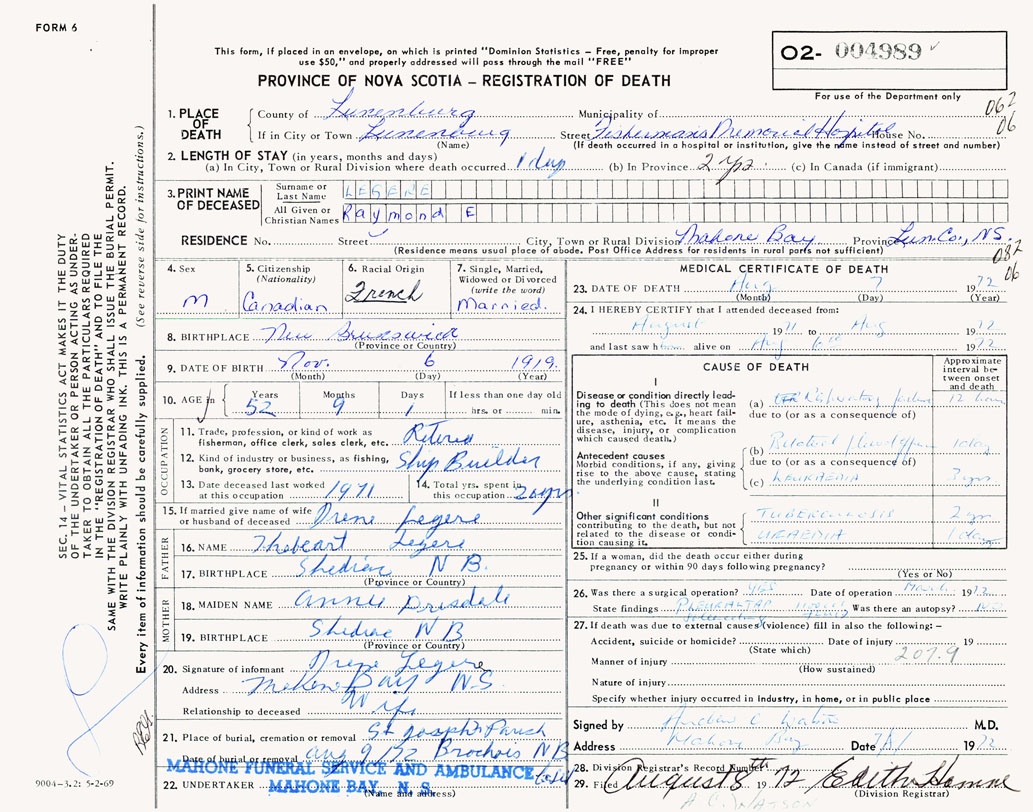 FORM 6
This form, if placed in an envelope, on which is printed "Dominion Statistics – Free, penalty for improper
use $50," and properly addressed will pass through the mail "FREE"
PROVINCE OF NOVA SCOTIA – REGISTRATION OF DEATH
02- 004989
For use of the Department only
062
06
1. PLACE OF DEATH County of Lunenburg Municipality of
If in City or Town Lunenburg Street Fisherman's Memorial Hospital House No.
(Name) (If death occurred in a hospital or institution, give the name instead of street and number)
2. LENGTH OF STAY (in years, months and days)
(a) In City, Town or Rural Division where death occurred 1 day (b) In Province 2 yrs. (c) In Canada (if immigrant)
3. PRINT NAME OF DECEASED Surname or Last Name LEGERE
All Given or Christian Names Raymond E
RESIDENCE No. Street City, Town or Rural Division Mahone Bay Province Lun. Co., NS.
(Residence means usual place of abode. Post Office Address for residents in rural parts not sufficient)
082
06
4. Sex M
5. Citizenship (Nationality) Canadian
6. Racial Origin French
7. Single, Married, Widowed or Divorced (write the word) Married.
8. BIRTHPLACE New Brunswick
(Province or Country)
9. DATE OF BIRTH Nov. 6 1919.
(Month) (Day) (Year)
10. AGE in Years 52 Months 9 Days 1 If less than one day old hrs. or min.
OCCUPATION
11. Trade, profession, or kind of work as
fisherman, office clerk, sales clerk, etc. Retired
12. Kind of industry or business, as fishing,
bank, grocery store, etc. Ship Builder
13. Date deceased last worked
at this occupation 1971
14. Total yrs. spent in
this occupation 20 yrs.
15. If married give name of wife
or husband of deceased Irene Legere
FATHER
16. NAME Legere
17. BIRTHPLACE Shediac N B.
(Province or Country)
MOTHER
18. MAIDEN NAME Annie Drisdale
19. BIRTHPLACE Shediac N B
(Province or Country)
20. Signature of informant Irene Legere
Address Mahone Bay N.S.
Relationship to deceased Wife
21. Place of burial, cremation or removal St Joseph's Parish
Date of burial or removal Aug 9/72 N B
MAHONE FUNERAL SERVICE AND AMBULANCE
MAHONE BAY, N. S.
22. UNDERTAKER (Name and address)
MEDICAL CERTIFICATE OF DEATH
23. DATE OF DEATH Aug 7 1972
(Month) (Day) (Year)
24. I HEREBY CERTIFY that I attended deceased from:
August 1971 to Aug 1972
and last saw h alive on Aug 6th 1972
CAUSE OF DEATH
Approximate interval between onset and death
I
Disease or condition directly leading to death (This does not mean the mode of dying, e.g., heart failure, asthenia, etc. It means the disease, injury, or complication which caused death.)
(a) Respiratory failure 12 hours
due to (or as a consequence of)
Antecedent causes
Morbid conditions, if any, giving rise to the above cause, stating the underlying condition last.
(b) Bilateral 1 day
due to (or as a consequence of)
(c) LEUKAEMIA yrs
II
Other significant conditions
contributing to the death, but not related to the disease or condition causing it.
TUBERCULOSIS 2 yrs
URAEMIA 1 day
25. If a woman, did the death occur either during
pregnancy or within 90 days following pregnancy?
(Yes or No)
26. Was there a surgical operation? YES Date of operation March 1972
State findings Was there an autopsy? NO
27. If death was due to external causes (violence) fill in also the following: –
Accident, suicide or homicide? Date of injury 19
(State which)
207.9
Manner of injury
(How sustained)
Nature of injury
Specify whether injury occurred in Industry, in home, or in public place
Signed by M.D.
Address Mahone Bay Date 7/8/ 1972
28. Division Registrar's Record Number
29. Filed August 8th 1972 Edith
(Division Registrar)
A.C. WATSON
SEC. 14 – VITAL STATISTICS ACT MAKES IT THE DUTY
OF THE UNDERTAKER OR PERSON ACTING AS UNDER-
TAKER TO OBTAIN ALL THE PARTICULARS REQUIRED
IN THE "REGISTRATION OF DEATH" AND TO FILE THE
SAME WITH THE DIVISION REGISTRAR WHO SHALL ISSUE THE BURIAL PERMIT.
WRITE PLAINLY WITH UNFADING INK. THIS IS A PERMANENT RECORD.
Every item of information should be carefully supplied. (See reverse side for instructions.)
9004-3.2: 5-2-69